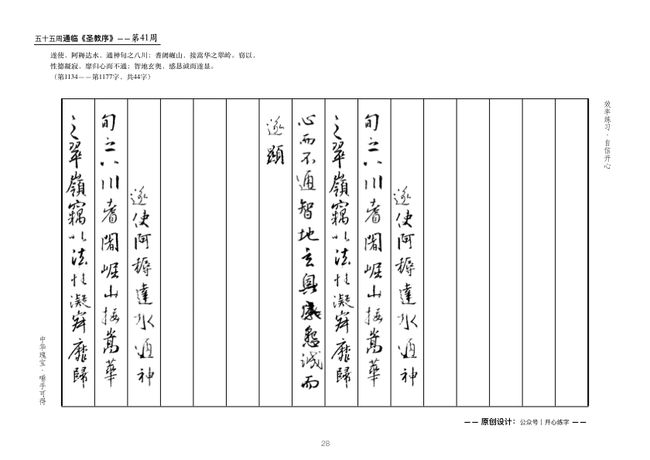 五十五周通临《圣教序》——第41周
遂使，阿耨达水，通神甸之八川；耆阇崛山，接嵩华之翠岭。窃以，
性德凝寂，靡归心而不通；智地玄奥，感恳诚而遂显。
（第1134——第1177字，共44字）
效率练习·自信开心
遂使阿耨達水通神
甸之八川耆闍崛山接嵩華
之翠嶺竊以法性凝寂靡歸
心而不通智地玄奥感懇誠而
遂顯
遂使阿耨達水通神
甸之八川耆闍崛山接嵩華
之翠嶺竊以法性凝寂靡歸
中华瑰宝·唾手可得
—— 原创设计：公众号丨开心练字 ——
28